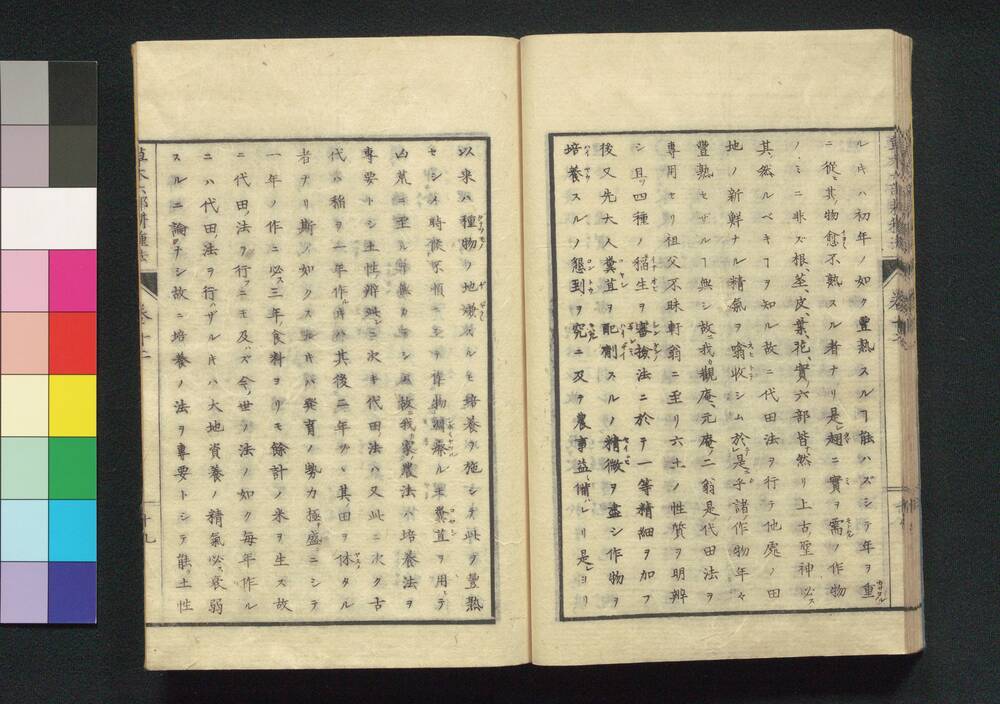 ルキハ初年ノ如ク豐熟スルヿ能ハズシテ年ヲ重
ニ從ヒ其物愈不熟スル者ナリ是レ啻ニ實ヲ需ル作物
ノミニ非ズ根、莖、皮、葉、花、實ノ六部皆然リ上古聖神必ス
其然ルベキヿヲ知ル故ニ代田法ヲ行テ他處ノ田
地ノ新鮮ナル精氣ヲ噏收シム於是乎諸作物年々
豐熟セザルヿ無シ故ニ我觀庵元庵ノ二翁是代田法ヲ
專用セリ祖父不昧軒翁ニ至リ六土ノ性質ヲ明辨
シ且ツ四種ノ稲生ヲ審撿法ニ於テ一等精細ヲ加フ
後又先大人糞苴ヲ配劑スルノ精微ヲ盡シ作物ヲ
培養スルノ懇到ヲ究ニ及テ農事益備ハレリ是ヨリ
以来ハ種物ノ地嫌スルモ培養ヲ施シテ此ヲ豐熟
セシメ時候不順ニ至テ作物
ル糞苴ヲ用テ
凶荒ニ至ル
無カラシム故ニ我家ノ農法ハ培養法ヲ
專要トシ土性ノ辨此ニ次キ代田法ハ又此ニ次ク古
代ハ稲ヲ一年作ルキハ其後二年ヅヽ其田ヲ休タル
者ナリ斯ノ如クスルキハ發育ノ勢力極盛ニシテ
一年ノ作ニ必ス三年ノ食料ヨリモ餘計ノ米ヲ生ズ故
ニ代田ノ法ヲ行フニモ及バズ今ノ世ノ法ノ如ク毎年作ル
ニハ代田法ヲ行ハザルキハ大地資養ノ精氣必ズ衰弱
スルニ論ナシ故ニ培養ノ法ヲ專要トシテ能ク土性
十九